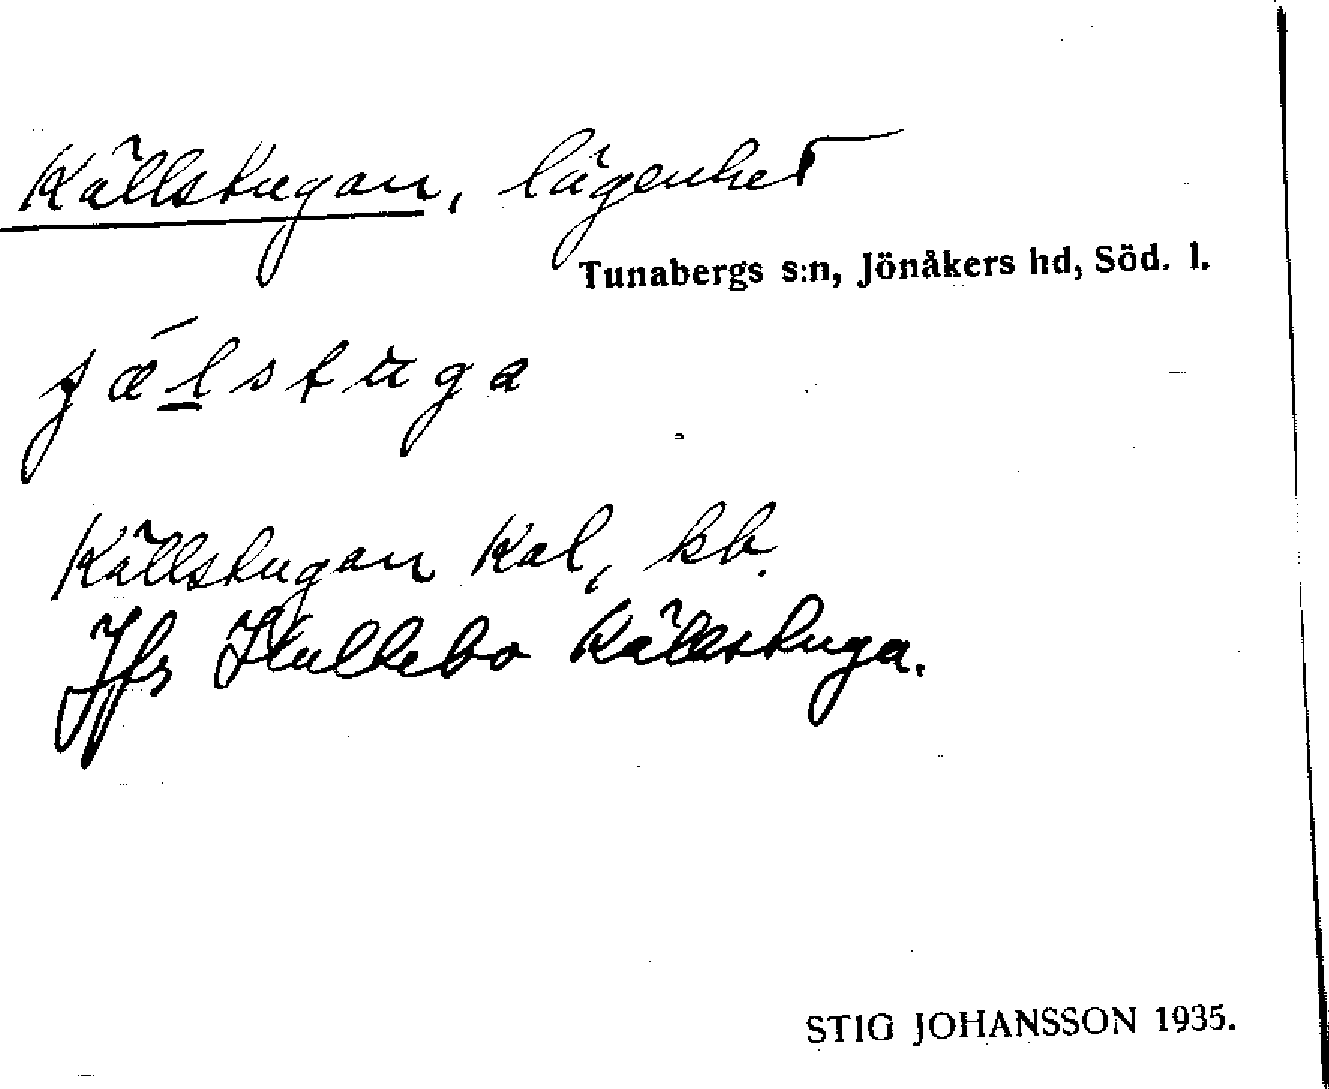 Källstugan, lägenhet
Tunabergs s:n, Jönåkers hd, Söd. l.
Källstugan Kal, kb.
Jfr Källstuga.
STIG JOHANSSON 1935.